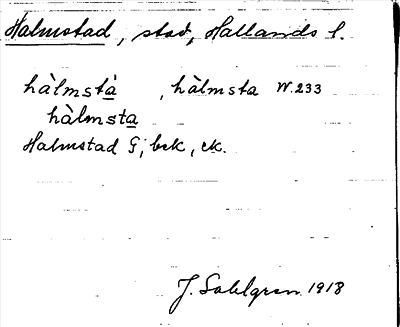 Halmstad, stad, Hallands l.
hàlmstà, hàlmsta W. 233
hàlmsta
Halmstad G; bek, ck.
J. Sahlgren 1918